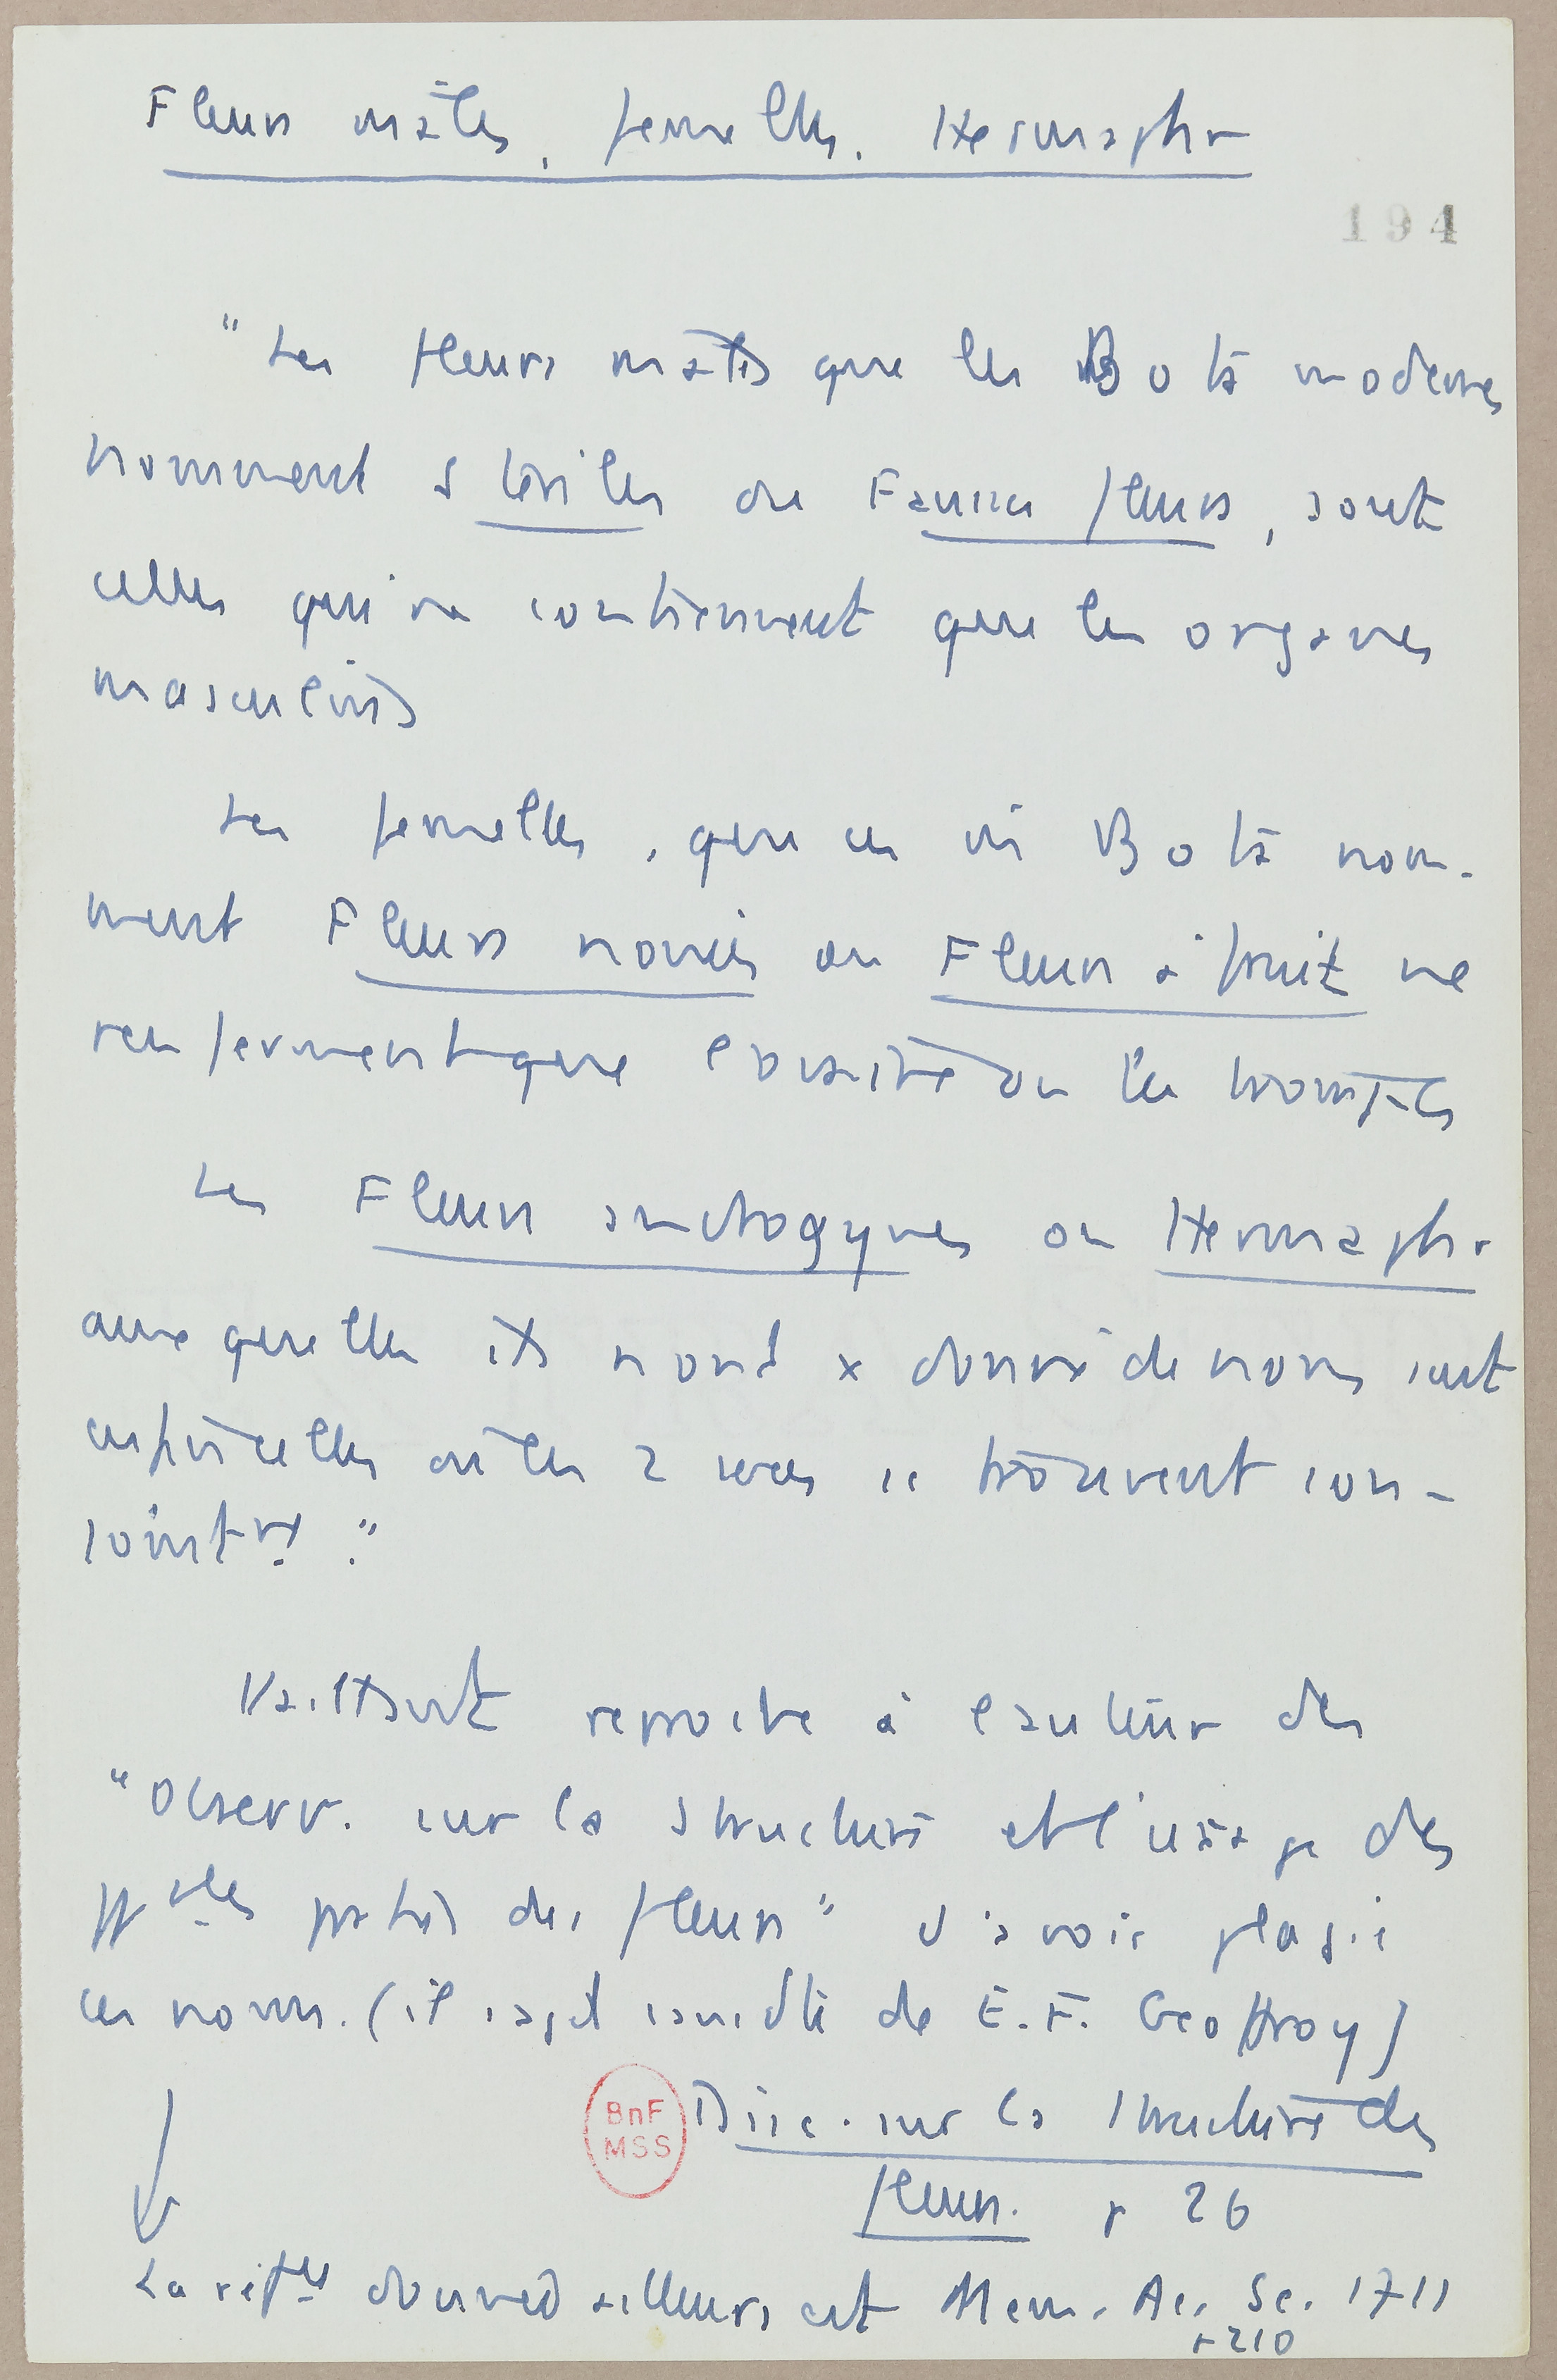 Fleurs mâles, femelles, Hermaphr
194
" Les fleurs mâles que les Bota modernes
nomment stériles ou Fausses fleurs, sont
celles qui ne contiennent que les organes
masculins
Les femelles, que ces mm Bota nom-
ment Fleurs nouées ou Fleurs à fruit ne
renferment que l'ovaire ou les trompes
Les Fleurs androgynes ou Hermaphr
auxquelles ils n'ont x donné de noms sont
enfin celles où les 2 sexes se trouvent con-
jointmt."
Vaillant reproche à l'auteur des
"Observ. sur la structure et l'usage des
ppales parties des fleurs" d'avoir plagié
ces noms. (il s'agit de E.F. Geoffroy)
BnF
MSS
Disc. sur la structure des
fleurs. p 26
La donnée ailleurs est Mem. Ac. Sc. 1711
p 210